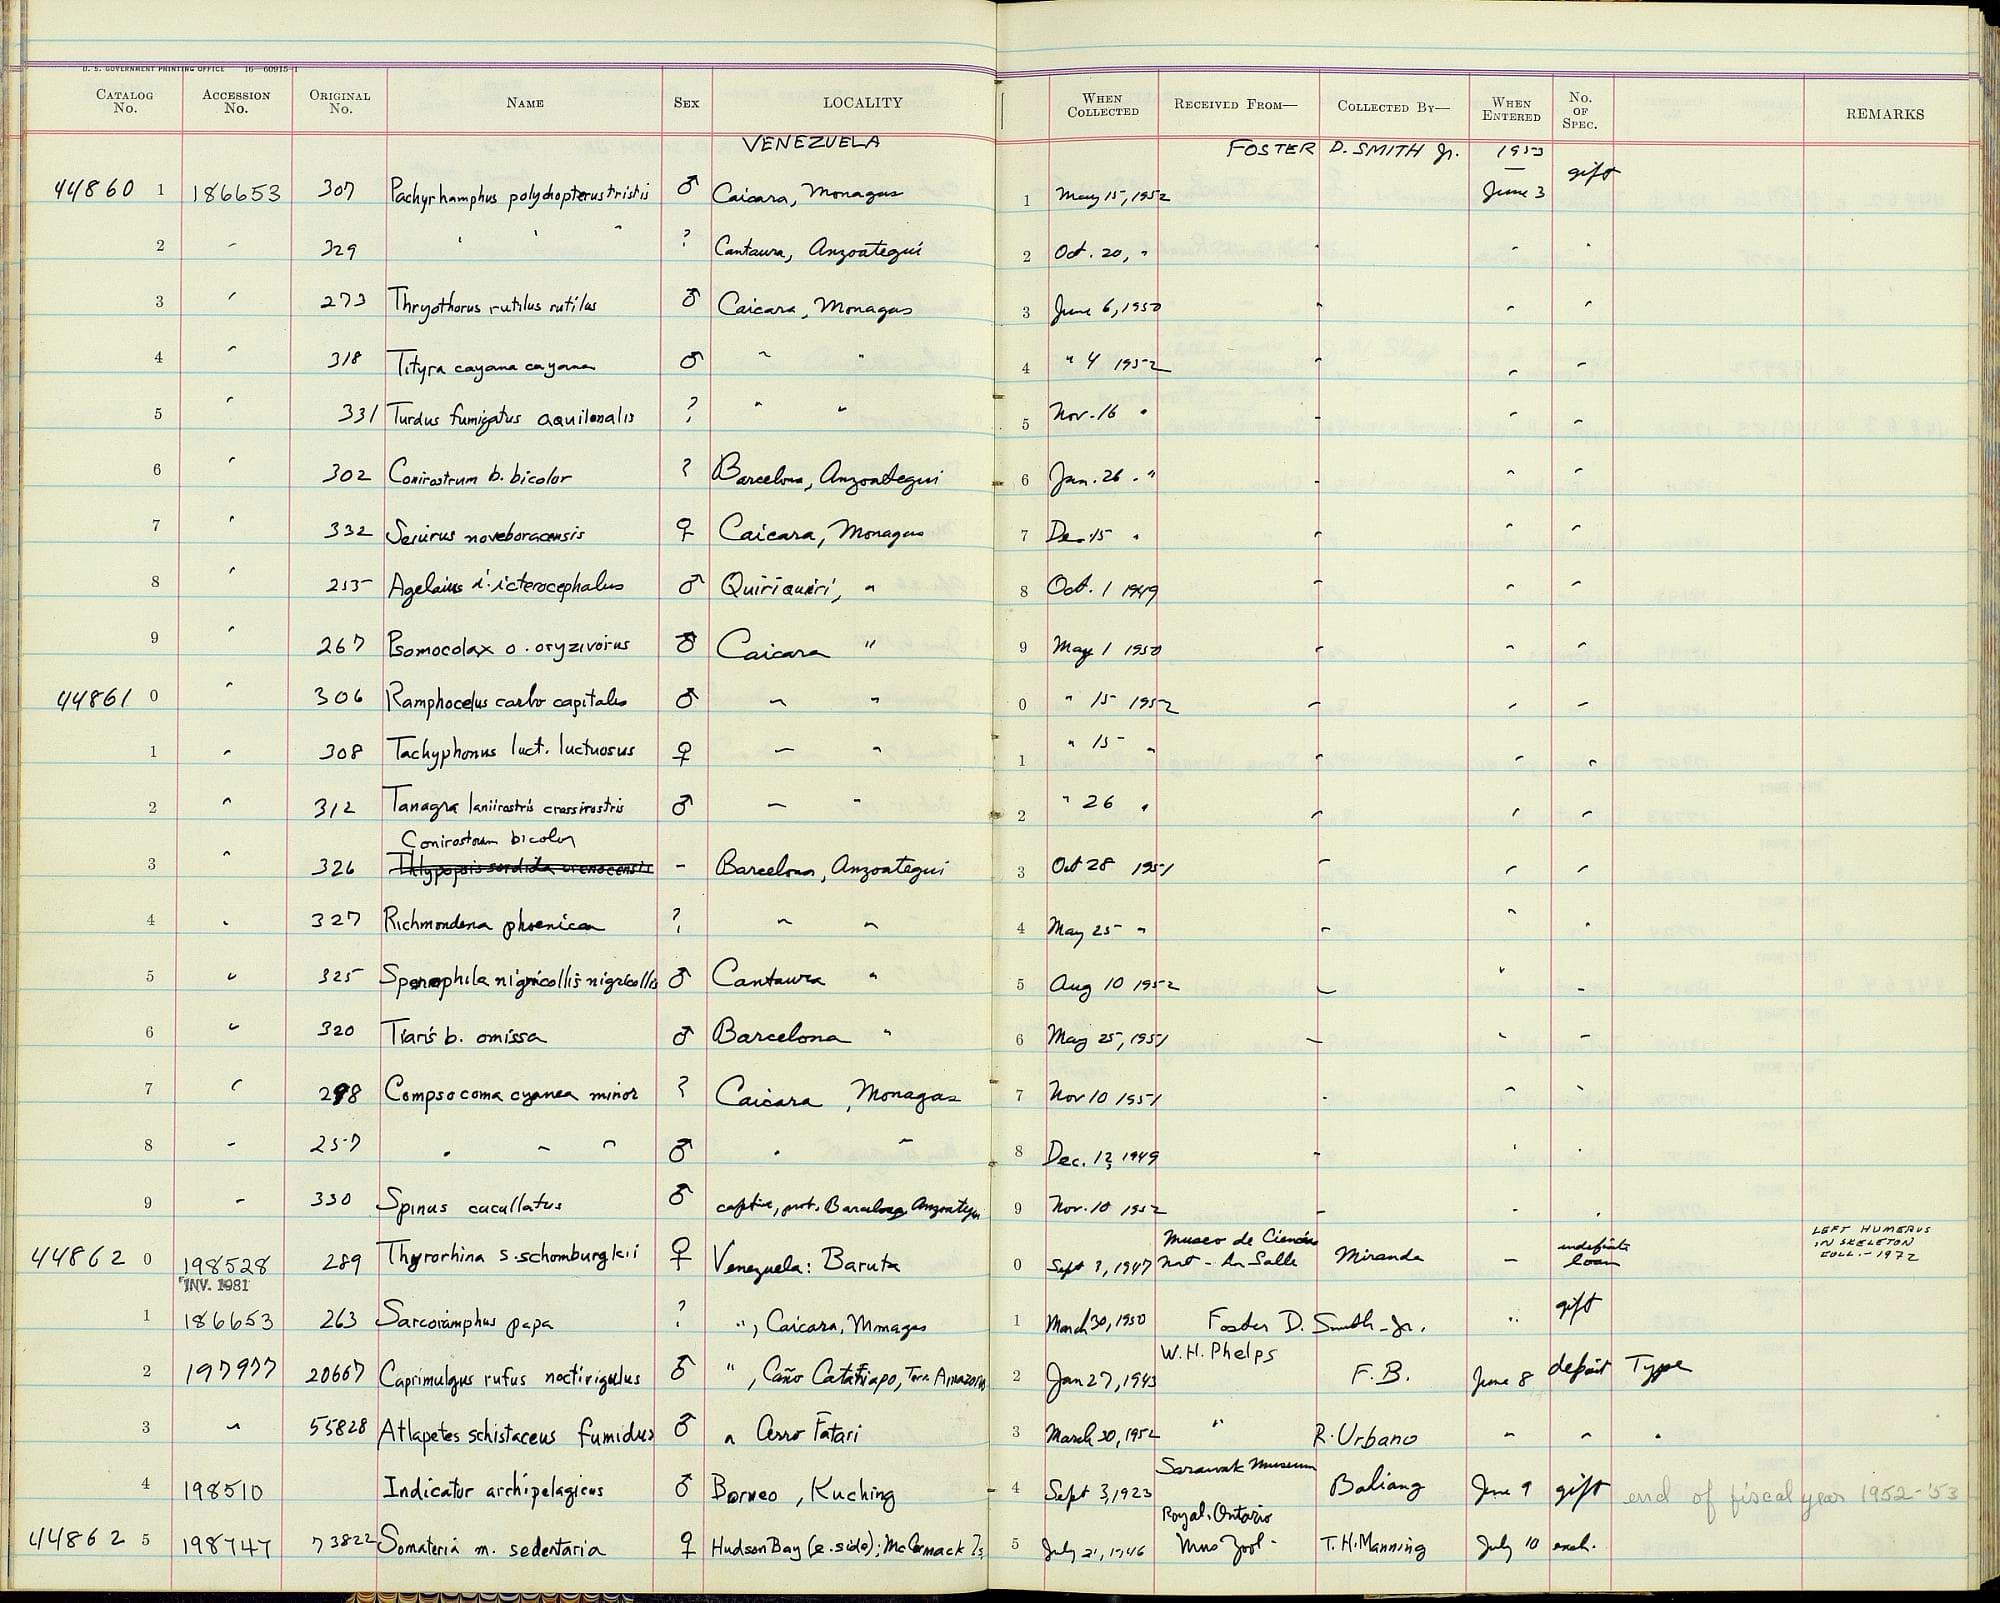 U. S. GOVERNMENT PRINTING OFFICE 16—60915-1
CATALOG No. ACCESSION No. ORIGINAL No. NAME SEX LOCALITY WHEN COLLECTED RECEIVED FROM— COLLECTED BY— WHEN ENTERED No. OF SPEC. REMARKS
VENEZUELA FOSTER D. SMITH Jr. 1953
44860 1 186653 307 Pachyrhamphus polychopterus tristis ♂ Caicara, Monagas 1 May 15, 1952 June 3 gift
2 " 329 " " " ? Cantaura, Anzoategui 2 Oct. 20, " " " "
3 " 273 Thryothorus rutilus rutilus ♂ Caicara, Monagas 3 June 6, 1950 " " "
4 " 318 Tityra cayana cayana ♂ " " 4 " 4 1952 " " "
5 " 331 Turdus fumigatus aquilonalis ? " " 5 Nov. 16 " " " "
6 " 302 Conirostrum b. bicolor ? Barcelona, Anzoategui 6 Jan. 26 " " " "
7 " 332 Seiurus noveboracensis ♀ Caicara, Monagas 7 Dec 15 " " " "
8 " 255 Agelaius i. icterocephalus ♂ Quiriquiri, " 8 Oct. 1 1949 " " "
9 " 267 Psomocolax o. oryzivorus ♂ Caicara " 9 May 1 1950 " " "
44861 0 " 306 Ramphocelus carbo capitalis ♂ " " 0 " 15 1952 " " "
1 " 308 Tachyphonus luct. luctuosus ♀ " " 1 " 15 " " " "
2 " 312 Tanagra laniirostris crassirostris ♂ " " 2 " 26 " " " "
Conirostrum bicolor
3 " 326 Thlypopsis sordida orenocensis - Barcelona, Anzoategui 3 Oct 28 1951 " " "
4 " 327 Richmondena phoenicea ? " " 4 May 25 " " " "
5 " 325 Sporophila nigricollis nigricollis ♂ Cantaura " 5 Aug 10 1952 " " "
6 " 320 Tiaris b. omissa ♂ Barcelona " 6 May 25, 1951 " " "
7 " 298 Compsocoma cyanea minor ? Caicara, Monagas 7 Nov 10 1951 " " "
8 " 257 " " " ♂ " " 8 Dec. 12, 1949 " " "
9 " 330 Spinus cucullatus ♂ captive, prob. Barcelona, Anzoategui 9 Nov. 10 1952 " " "
Museo de Ciencias LEFT HUMERUS
44862 0 198528 289 Thyrorhina s. schomburgkii ♀ Venezuela: Baruta 0 Sept 3, 1947 Nat - La Salle Miranda " indefinite loan IN SKELETON
INV. 1981 COLL. - 1972
1 186653 263 Sarcoramphus papa ? ", Caicara, Monagas 1 March 30, 1950 Foster D. Smith Jr. " gift
W. H. Phelps
2 197977 20667 Caprimulgus rufus noctivigulus ♂ ", Caño Cataniapo, Terr. Amazonas 2 Jan 27, 1943 F. B. June 8 deposit Type
3 " 55828 Atlapetes schistaceus fumidus ♂ " Cerro Tatari 3 March 30, 1952 " R. Urbano " " "
Sarawak Museum
4 198510 Indicator archipelagicus ♂ Borneo, Kuching 4 Sept 3, 1923 Baliang June 9 gift end of fiscal year 1952-'53
Royal Ontario
44862 5 198747 73822 Somateria m. sedentaria ♀ Hudson Bay (e. side); McCormack Is. 5 July 21, 1946 Mus Zool - T. H. Manning July 10 exch.